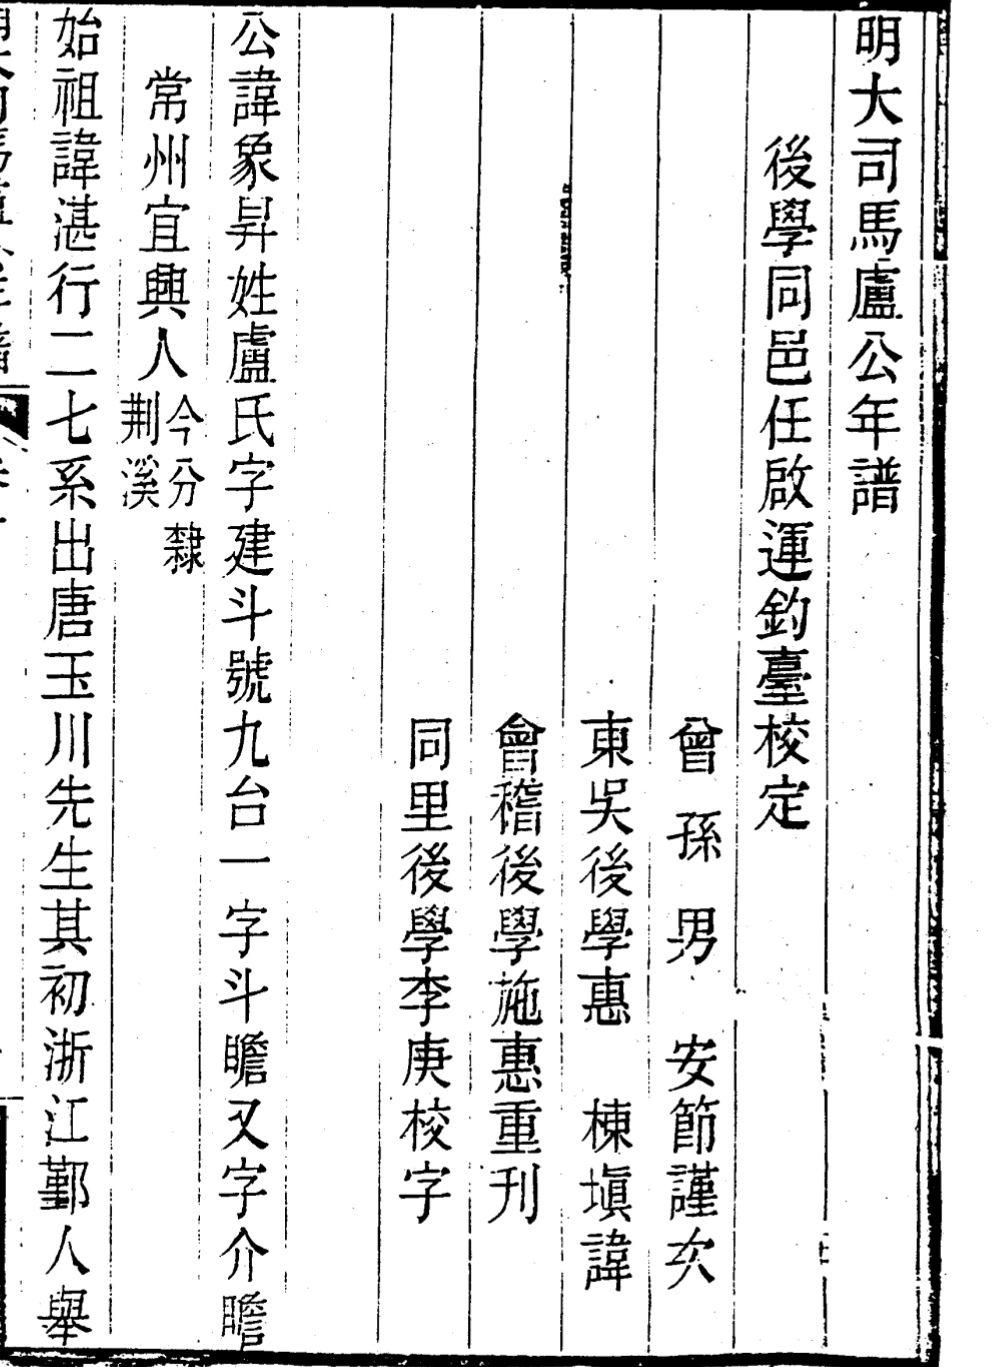 明大司馬盧公年譜
後學同邑任啟運釣臺校定
曾孫男 安節謹次
東吳後學惠 棟塡諱
會稽後學施惠重刊
同里後學李庚校字
公諱象昇姓盧氏字建斗號九台一字斗瞻又字介瞻
常州宜興人今分隸荆溪
始祖諱湛行二七系出唐玉川先生其初浙江鄞人舉